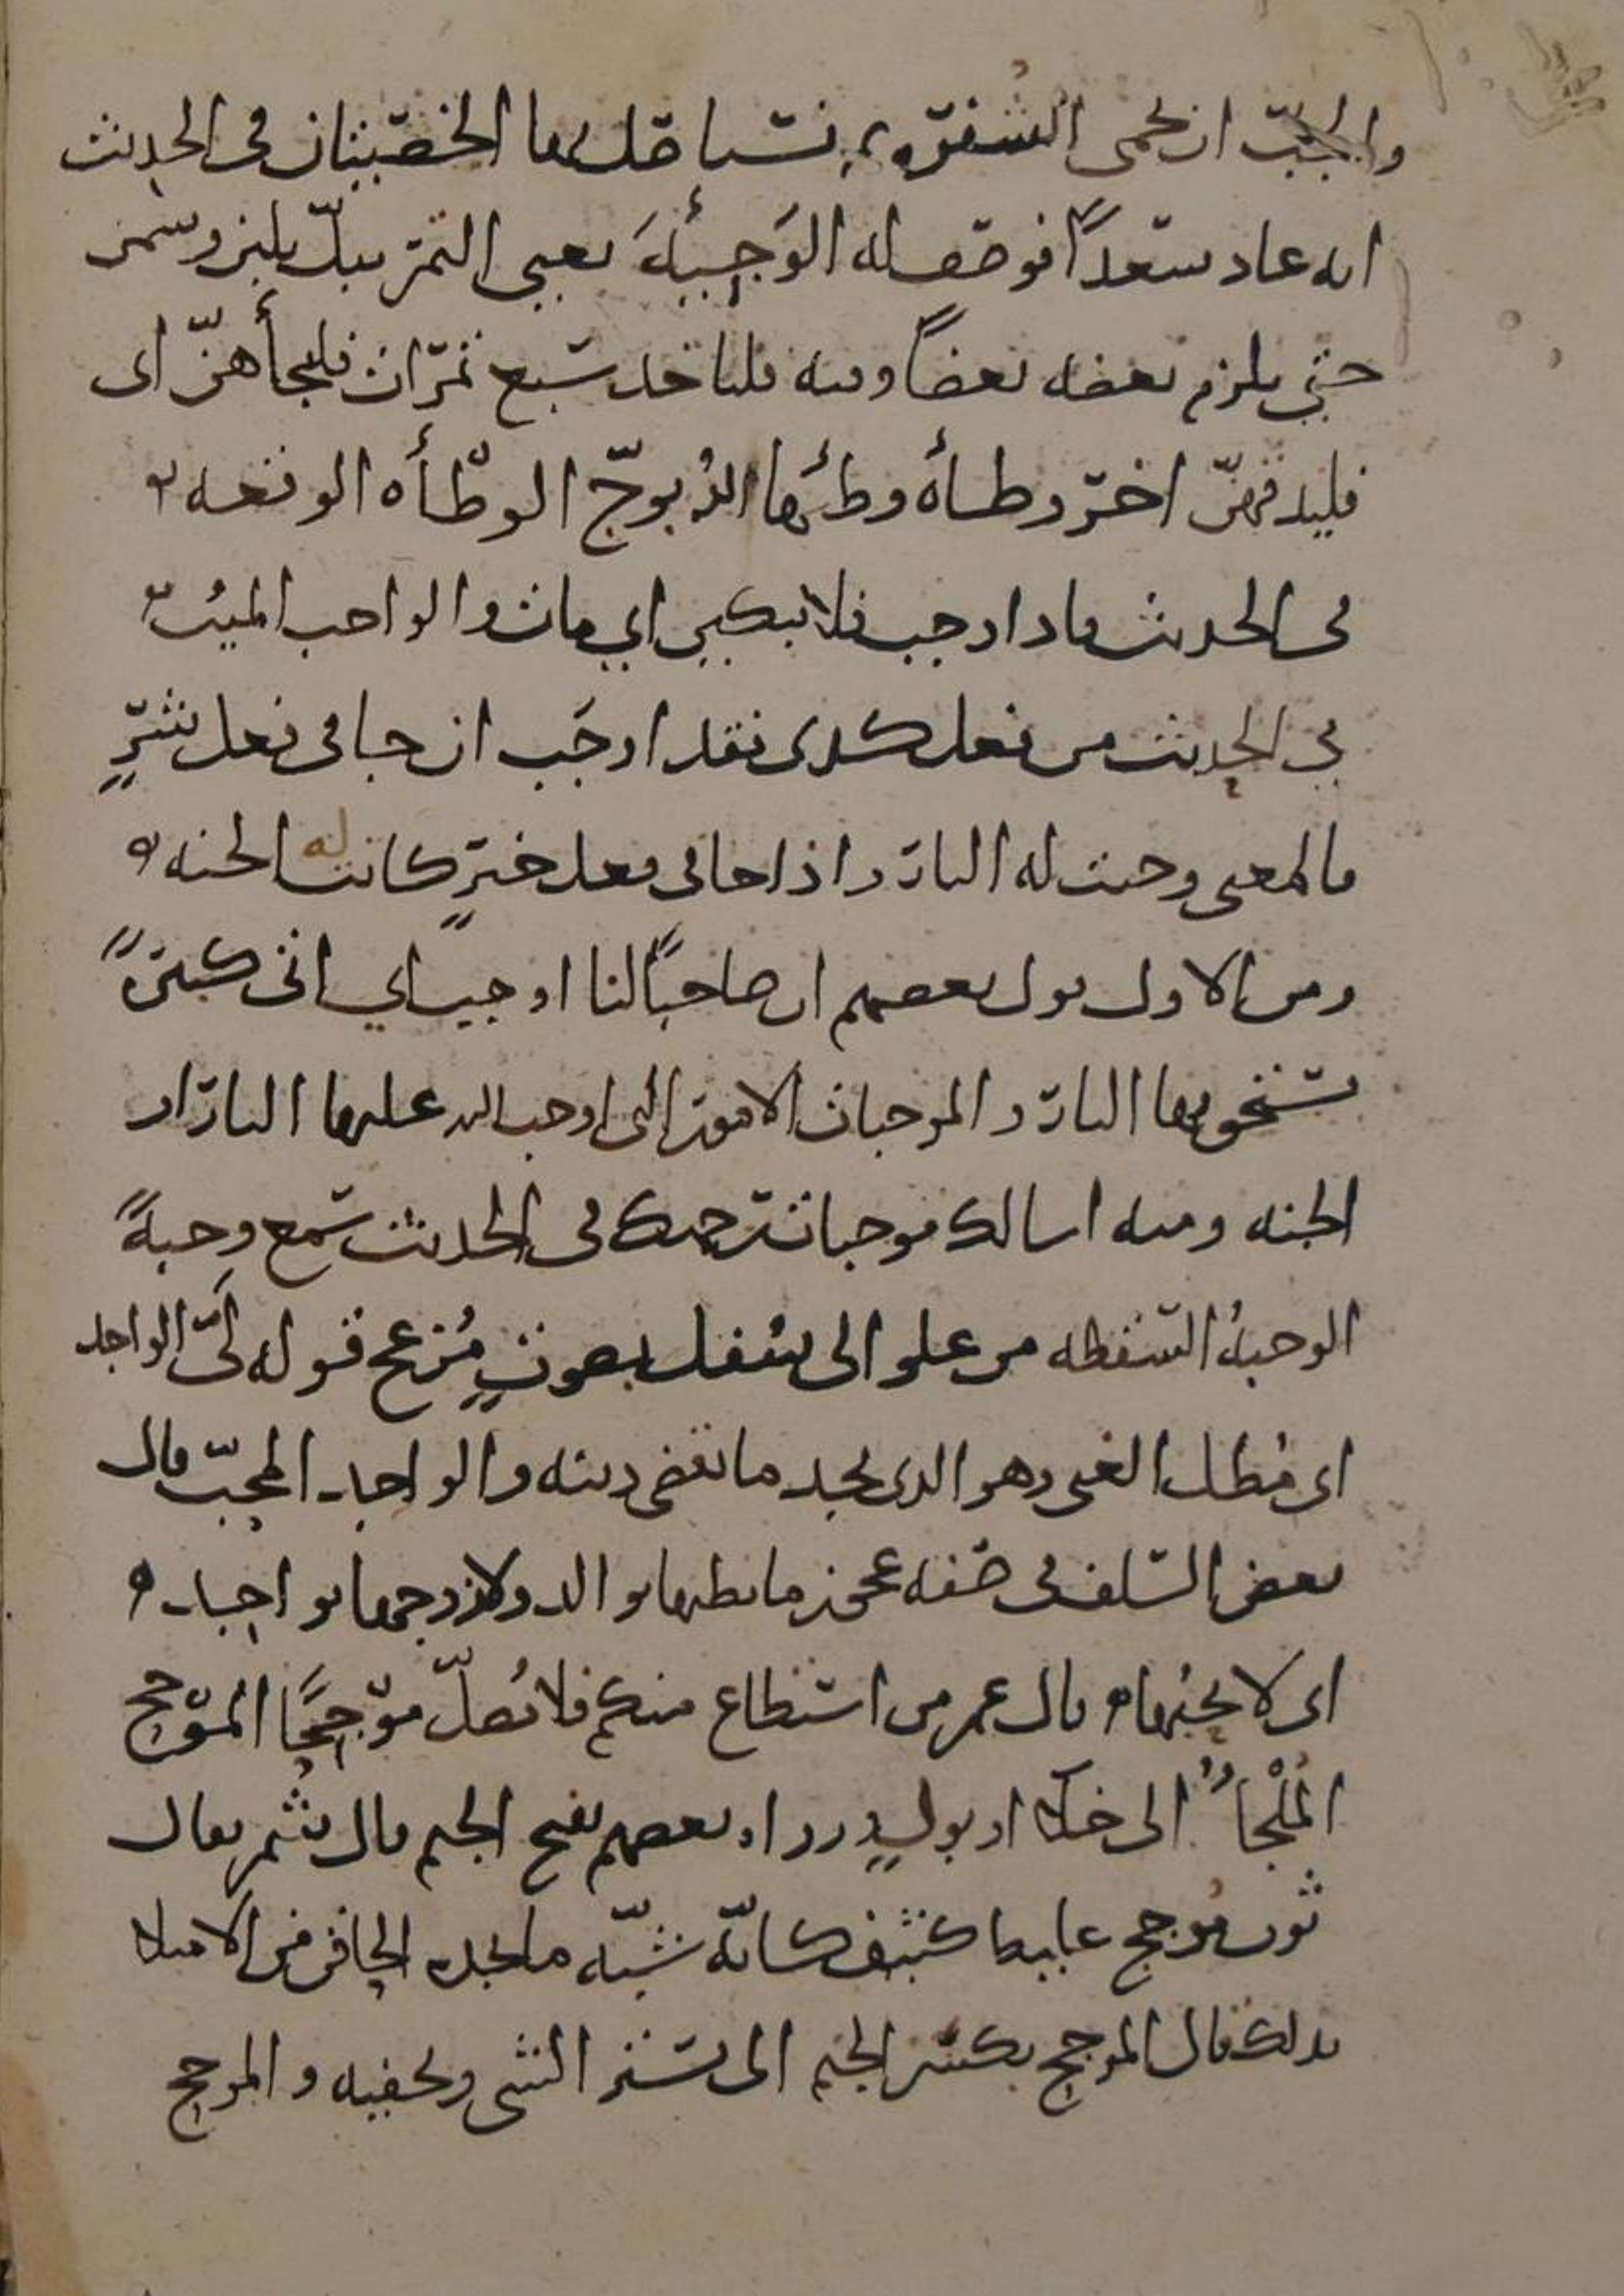 والجب ان تحمى الشفرة ثم تستأصل بها الخصيتان في الحديث
انه عاد سعدًا فوصف له الوَجِيئَةَ يعني التمر يبلّ بلبن وسمن
حتى يلزم بعضه بعضًا ومنه فلياخذ سبع تمرات فليجأهنّ اى
فليدقهنّ اخر وطأه وطئها الله بوجّ الوطْأه الوقعه
في الحديث فاذا وجب فلا تبكين اي مات والواجب الميت
في الحديث من فعل كدى فقد اوجَب ان جا في فعل شرٍّ
فالمعنى وجبت له النار واذا جا في فعل خيرٍ كانت له الجنه
ومن الاول قول بعضهم ان صاحبًا لنا اوجب اي اتى كبيرةً
يستحق بها النار والموجبات الامور التى اوجب الله عليها النار او
الجنه ومنه اسالك موجبات رحمتك في الحديث سمع وجبةً
الوجبةُ السقطه من علو الى سفل بصوتٍ مُزعج قوله لَىّ الواجد
اى مطل الغنى وهو الذى يجد ما يقضى دينه والواجد المحبّ قال
بعض السلف فى صفه عجوز ما بطنها بوالد ولا زوجها بواجد
اى لا يحبها قال عمر من استطاع منكم فلا يُصلّ موجحًا الموجح
المُلْجأُ الى خلا او بولٍ ورواه بعضهم بفتح الجيم قال شمر يقال
ثوب موجح غليظ كثيف كانّه شبّه ما يجده الحاقن من الامتلا
بذلك قال الموجح بكسر الجيم الذى يستر الشى ويخفيه والموجح